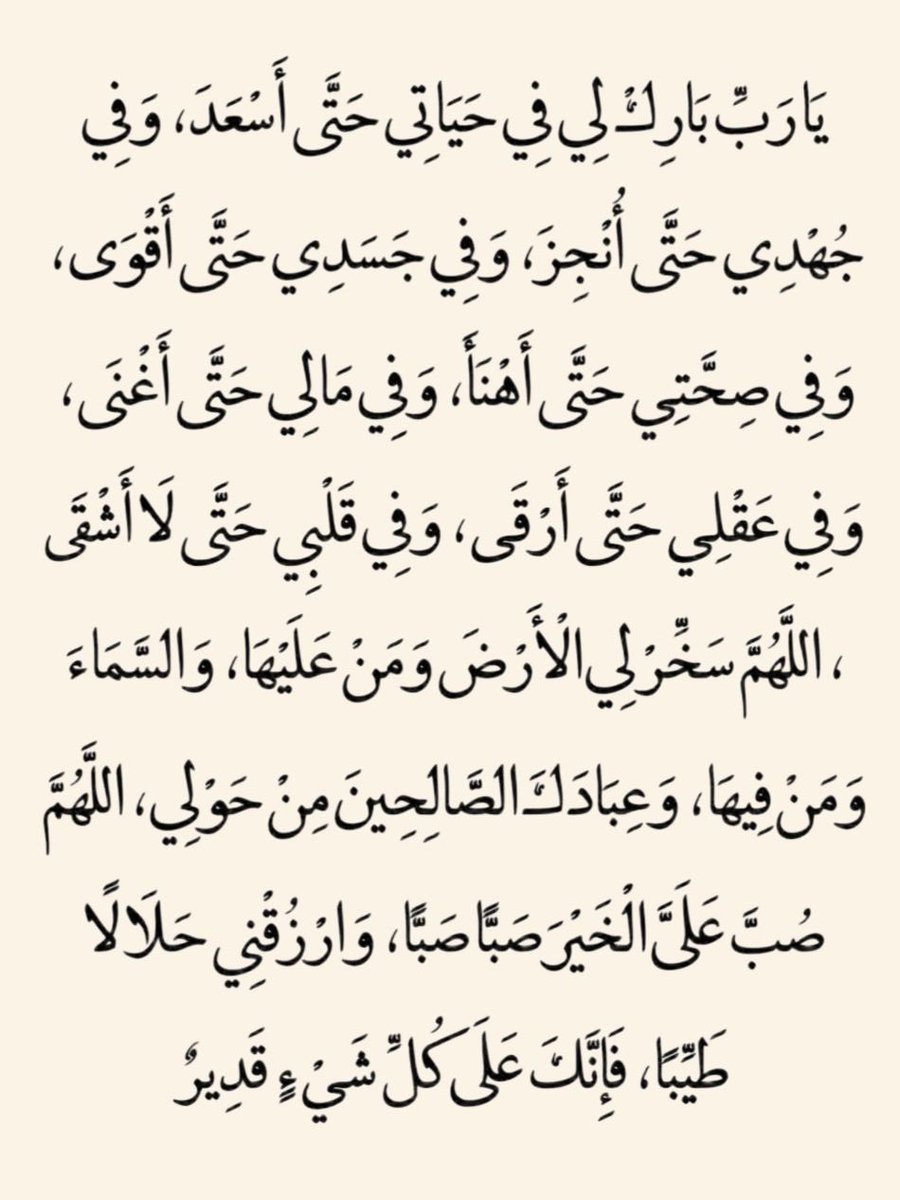 يَا رَبِّ بَارِكْ لِي فِي حَيَاتِي حَتَّى أَسْعَدَ، وَفِي
جُهْدِي حَتَّى أُنْجِزَ، وَفِي جَسَدِي حَتَّى أَقْوَى،
وَفِي صِحَّتِي حَتَّى أَهْنَأَ، وَفِي مَالِي حَتَّى أَغْنَى،
وَفِي عَقْلِي حَتَّى أَرْقَى، وَفِي قَلْبِي حَتَّى لَا أَشْقَى
، اللَّهُمَّ سَخِّرْ لِي الْأَرْضَ وَمَنْ عَلَيْهَا، وَالسَّمَاءَ
وَمَنْ فِيهَا، وَعِبَادَكَ الصَّالِحِينَ مِنْ حَوْلِي، اللَّهُمَّ
صُبَّ عَلَيَّ الْخَيْرَ صَبًّا صَبًّا، وَارْزُقْنِي حَلَالًا
طَيِّبًا، فَإِنَّكَ عَلَى كُلِّ شَيْءٍ قَدِيرٌ